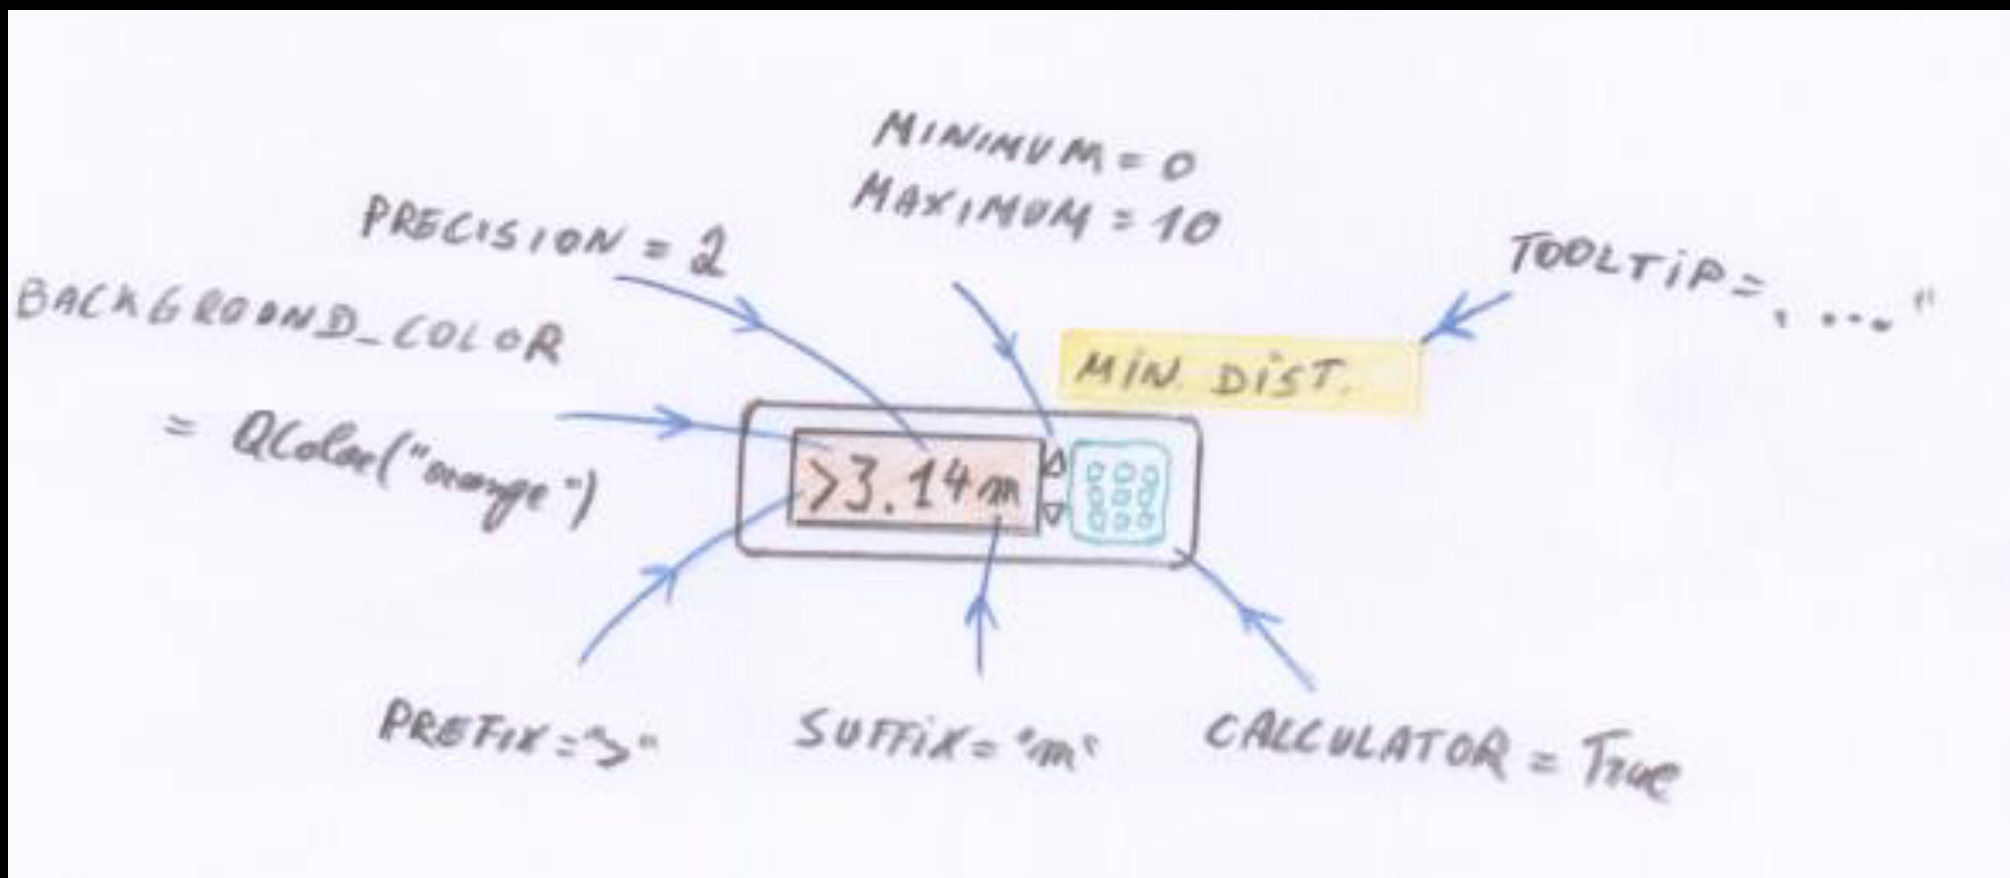 MINIMUM = 0
MAXIMUM = 10
PRECISION = 2
TOOLTIP = „ ...."
BACKGROUND_COLOR
= QColor("orange")
MIN. DIST.
>3.14m
PREFIX = ">"
SUFFIX = "m"
CALCULATOR = True